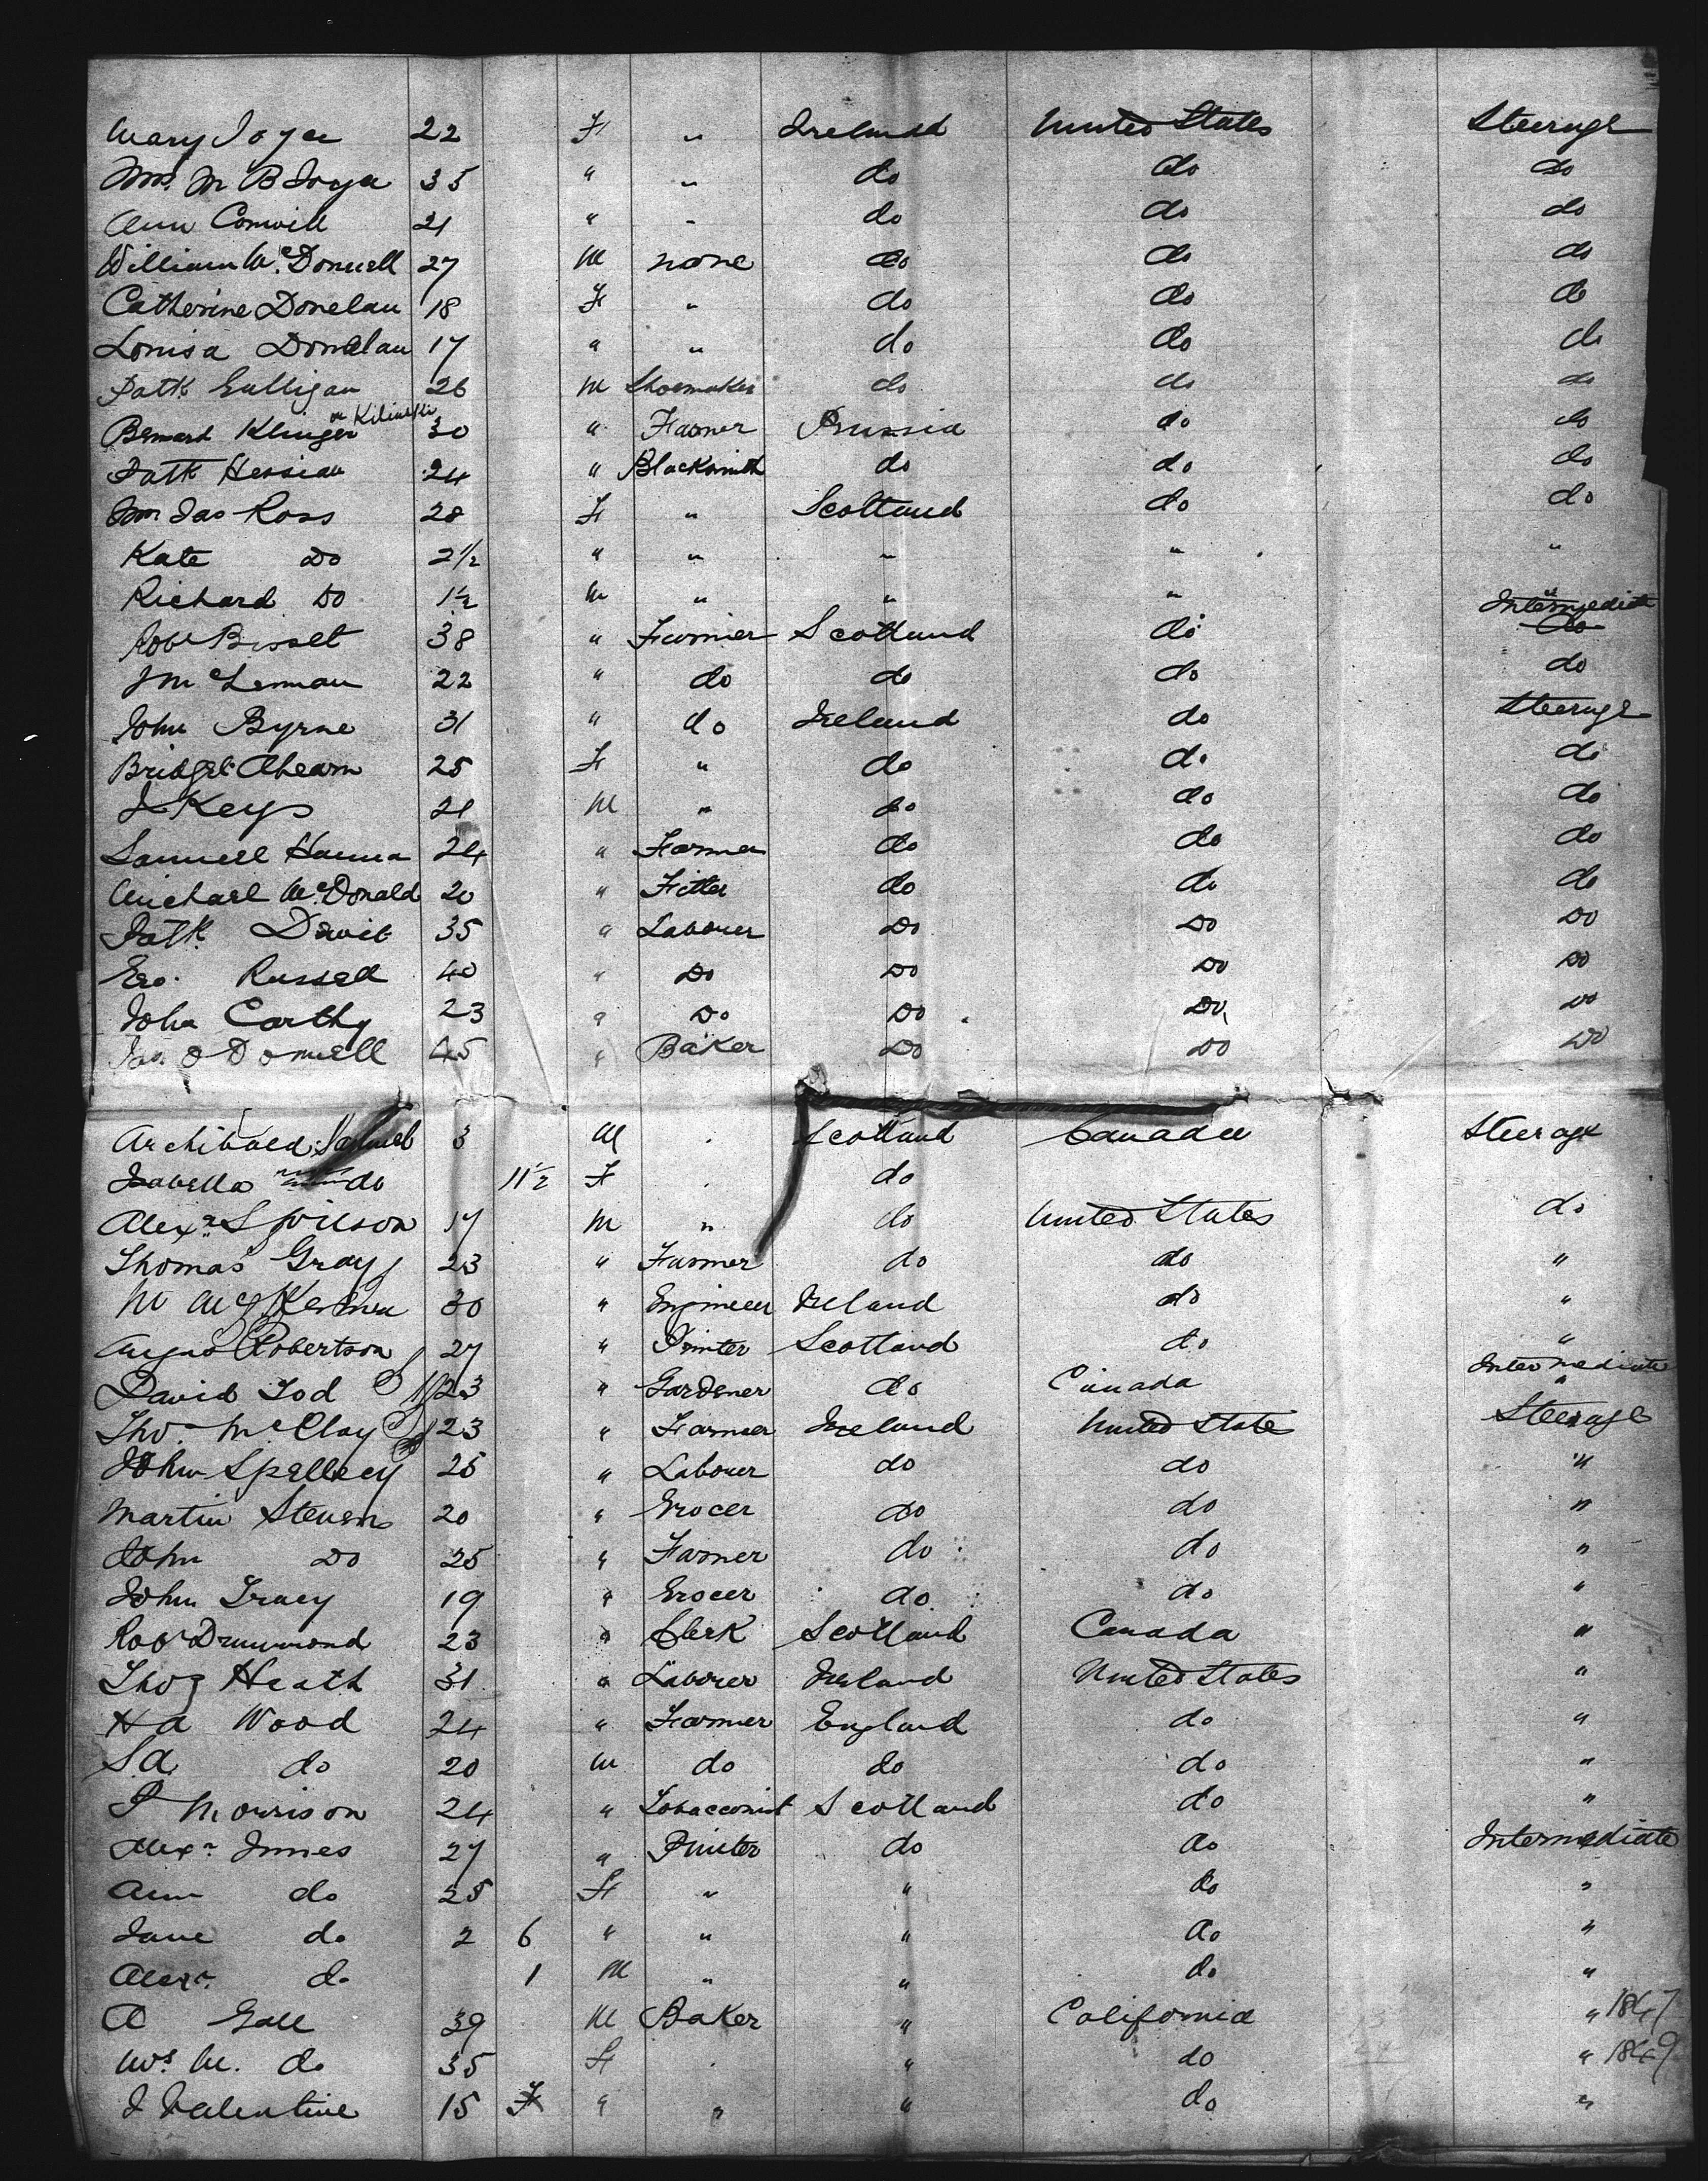 Mary Joyce 22 F " Ireland United States Steerage
Mrs. M B Joyce 35 " " do do do
Ann Conwill 21 " " do do do
William McDonnell 27 M none do do do
Catherine Donelan 18 F " do do do
Louisa Donelan 17 " " do do do
Patk Gulligan 26 M Shoemaker do do do
Bernard Klinger or 30 " Farmer Prussia do do
Patk Hessian 24 " Blacksmith do do do
Mrs Jas Ross 28 F " Scotland do do
Kate Do 2½ " " " " "
Richard Do 1½ M " " " "
Robt Bisset 38 " Farmer Scotland do Intermediate do
J McLennan 22 " do do do do
John Byrne 31 " do Ireland do Steerage
Bridget Ahearn 25 F " do do do
J Keys 21 M " do do do
Samuel Hanna 24 " Farmer do do do
Michael McDonald 20 " Fitter do do do
Patk Davit 35 " Labourer Do Do Do
Geo. Russell 40 " Do Do Do Do
John Carthy 23 " Do Do Do Do
Jas. O Donnell 45 " Baker Do Do Do
Archibald 3 M " Scotland Canada Steerage
Isabella do 11½ F " do
Alexr S Wilson 17 M " do United States do
Thomas Gray 23 " Farmer do do "
M 30 " Engineer Ireland do "
Angus Robertson 27 " Printer Scotland do "
David Tod 23 " Gardener do Canada Intermediate "
Tho. McClay 23 " Farmer Ireland United State Steerage
John Spellecy 25 " Labourer do do "
Martin Stevens 20 " Grocer do do "
John Do 25 " Farmer do do "
John Tracy 19 " Grocer do do "
Robt Drummond 23 " Clerk Scotland Canada "
Thos Heath 31 " Laborer Ireland United States "
H A Wood 24 " Farmer England do "
S A do 20 M do do do "
P Morrison 24 " Tobacconist Scotland do "
Alexr Innes 27 " Printer do do Intermediate
Ann do 25 F " " do "
Jane do 2 6 " " " do "
Alexr do 1 M " " do "
A Gall 39 M Baker " California " 1847
Mrs M. do 35 F " " do " 1849
J Valentine 15 F " " " do "